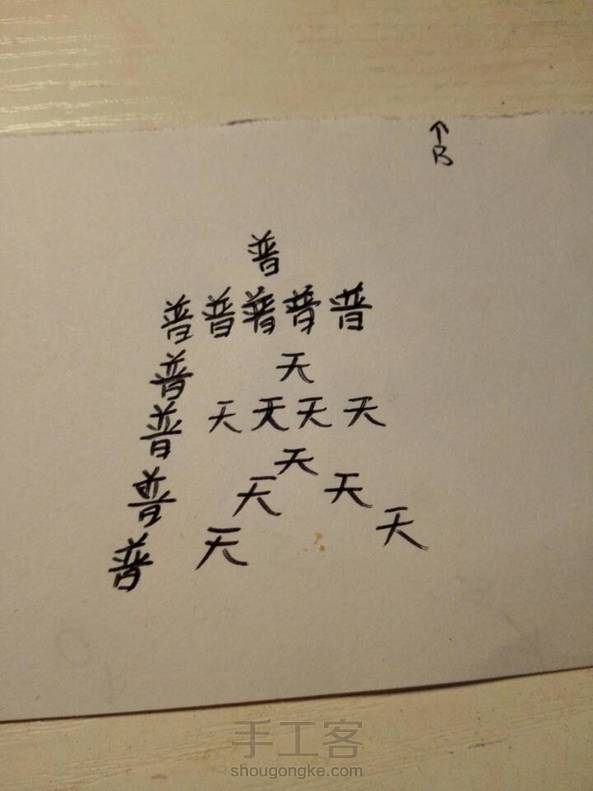 B
普
普普普普普
普 天
普 天天天天
天
普 天 天
普 天 天
手工客
shougongke.com